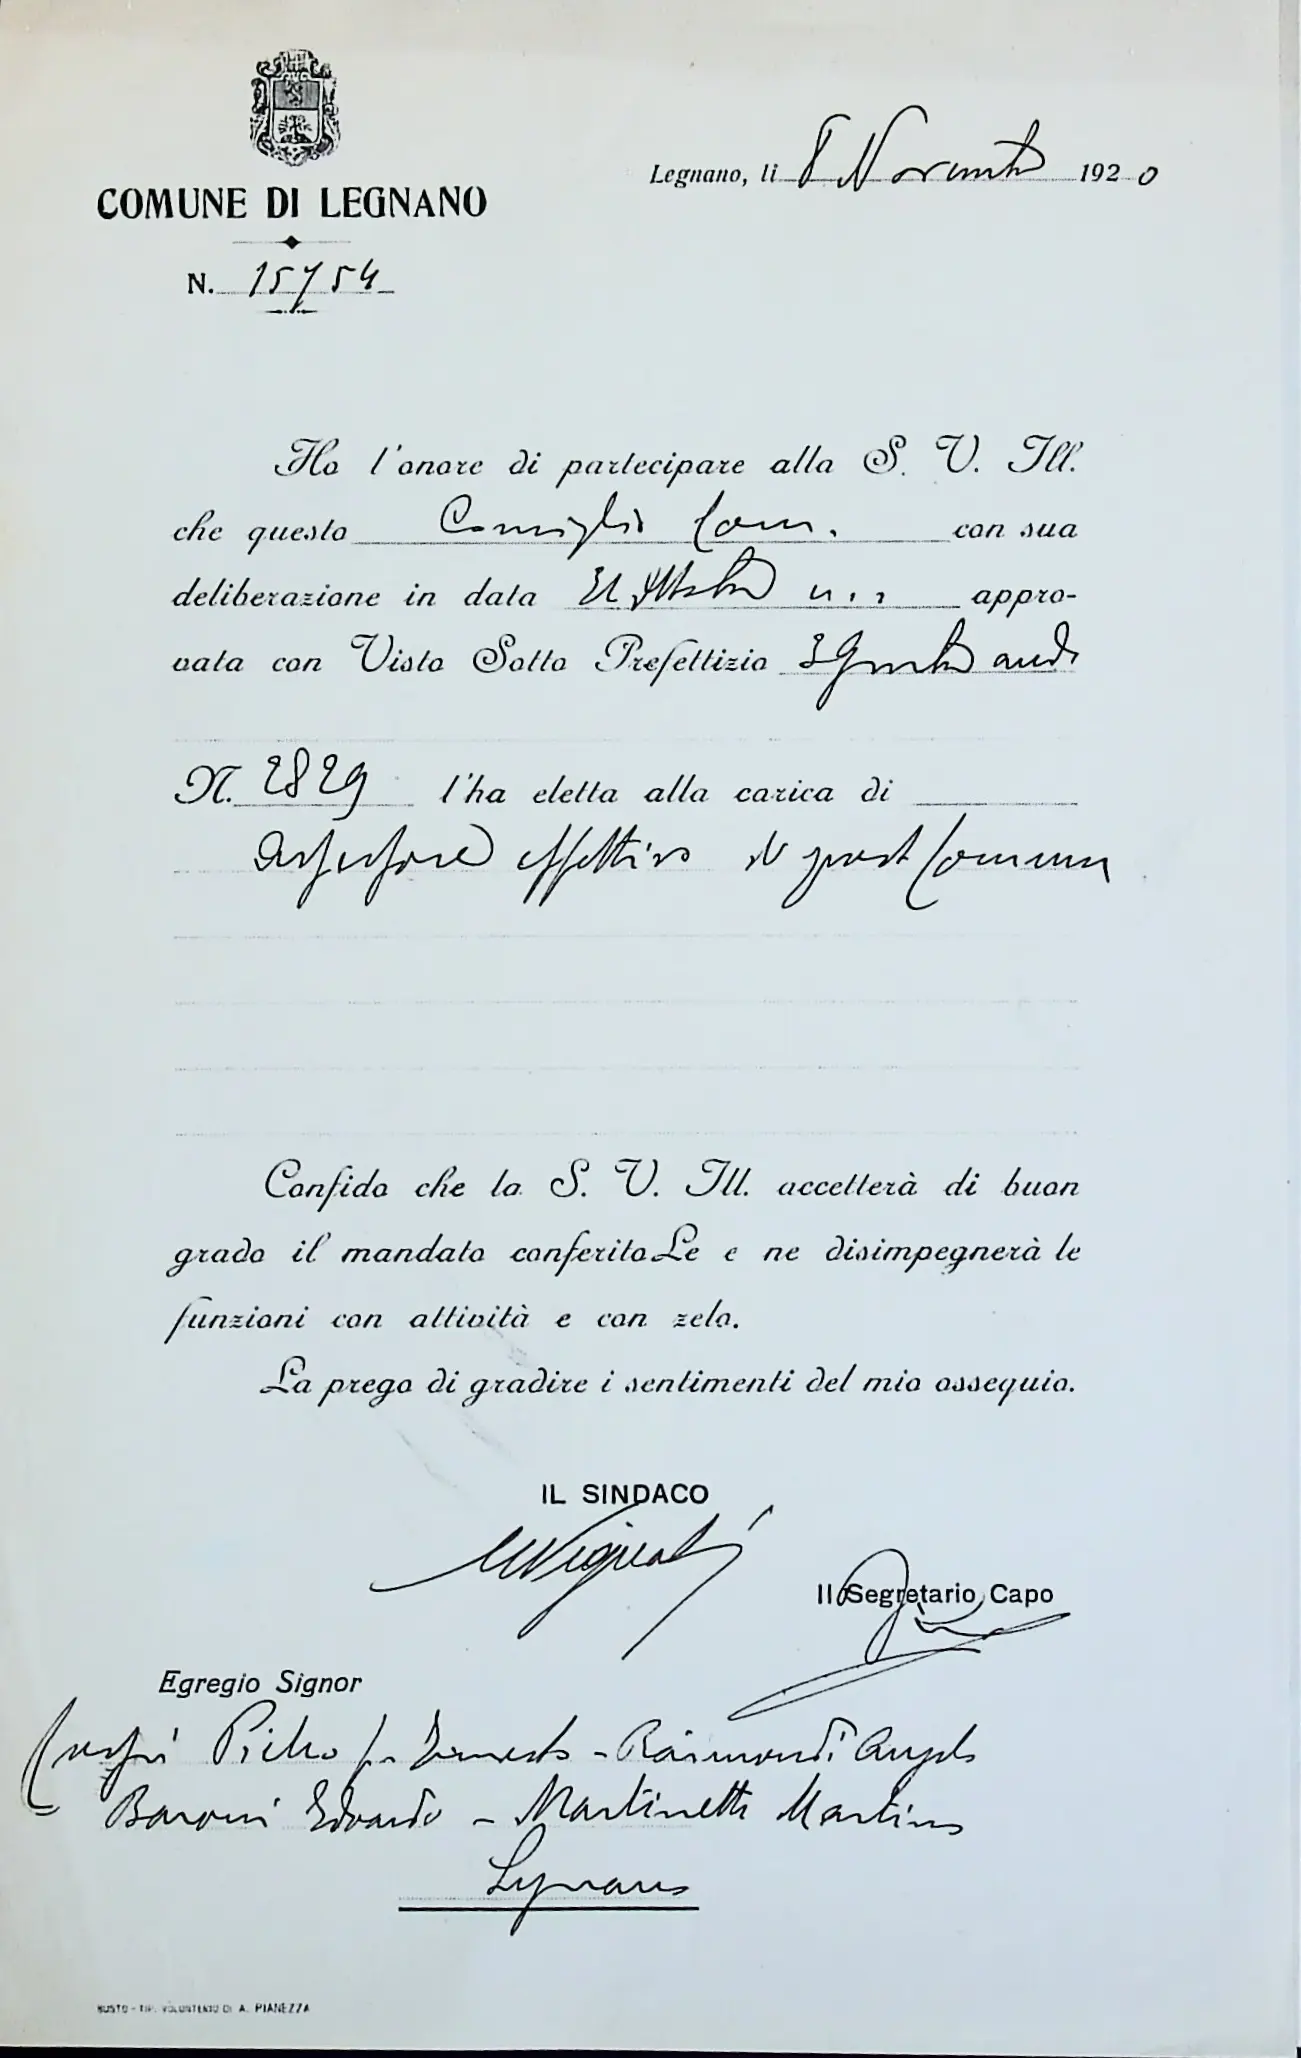 COMUNE DI LEGNANO
Legnano, li 8 Novembre 1920
N. 15754
Ho l'onore di partecipare alla S. V. Ill.
che questo Consiglio Com. con sua
deliberazione in data 31 Ottobre u.s. appro-
vata con Visto Sotto Prefettizio
N. 2829 l'ha eletta alla carica di
Assessore effettivo di questo Comune
Confido che la S. V. Ill. accetterà di buon
grado il mandato conferitoLe e ne disimpegnerà le
funzioni con attività e con zelo.
La prego di gradire i sentimenti del mio ossequio.
IL SINDACO
Il Segretario Capo
Egregio Signor
Crespi Pietro fu Ernesto - Raimondi Angelo
Baroni Edoardo - Martinetti Martino
Legnano
BUSTO - TIP. DI A. PIANEZZA